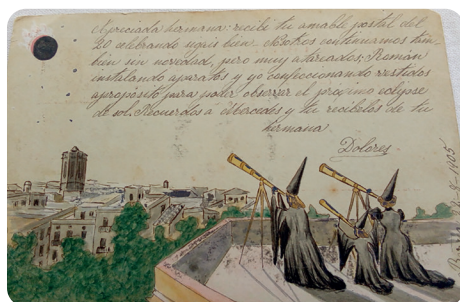 Apreciada hermana: recibí tu amable postal del
20 celebrando sigais bien. Nosotros continuamos tam-
bien sin novedad, pero muy atareados; Román
instalando aparatos y yo confeccionando vestidos
apropósito para poder observar el próximo eclipse
de sol. Recuerdos á Mercedes y tu recíbelos de tu
hermana
Dolores
1905